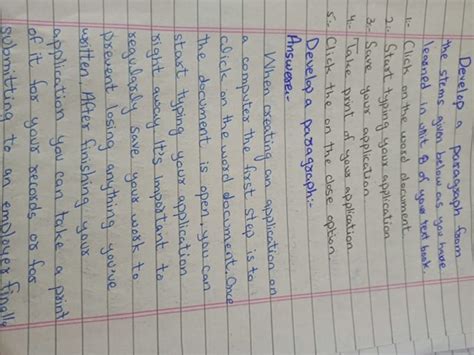 Develop a paragraph from
the steps given below as you have
learned in unit 8 of your text book.
1- Click on the word document
2- Start typing your application
3- Save your application
4- Take print of your application
5- Click the on the close option
Develop a paragraph:-
Answere:-
When creating an application on
a computer the first step is to
click on the word document. Once
the document is open, you can
start typing your application
right away. It's important to
regularly save your work to
prevent losing anything you've
written. After finishing your
application you can take a print
of it for your records or for
submitting to an employer finally